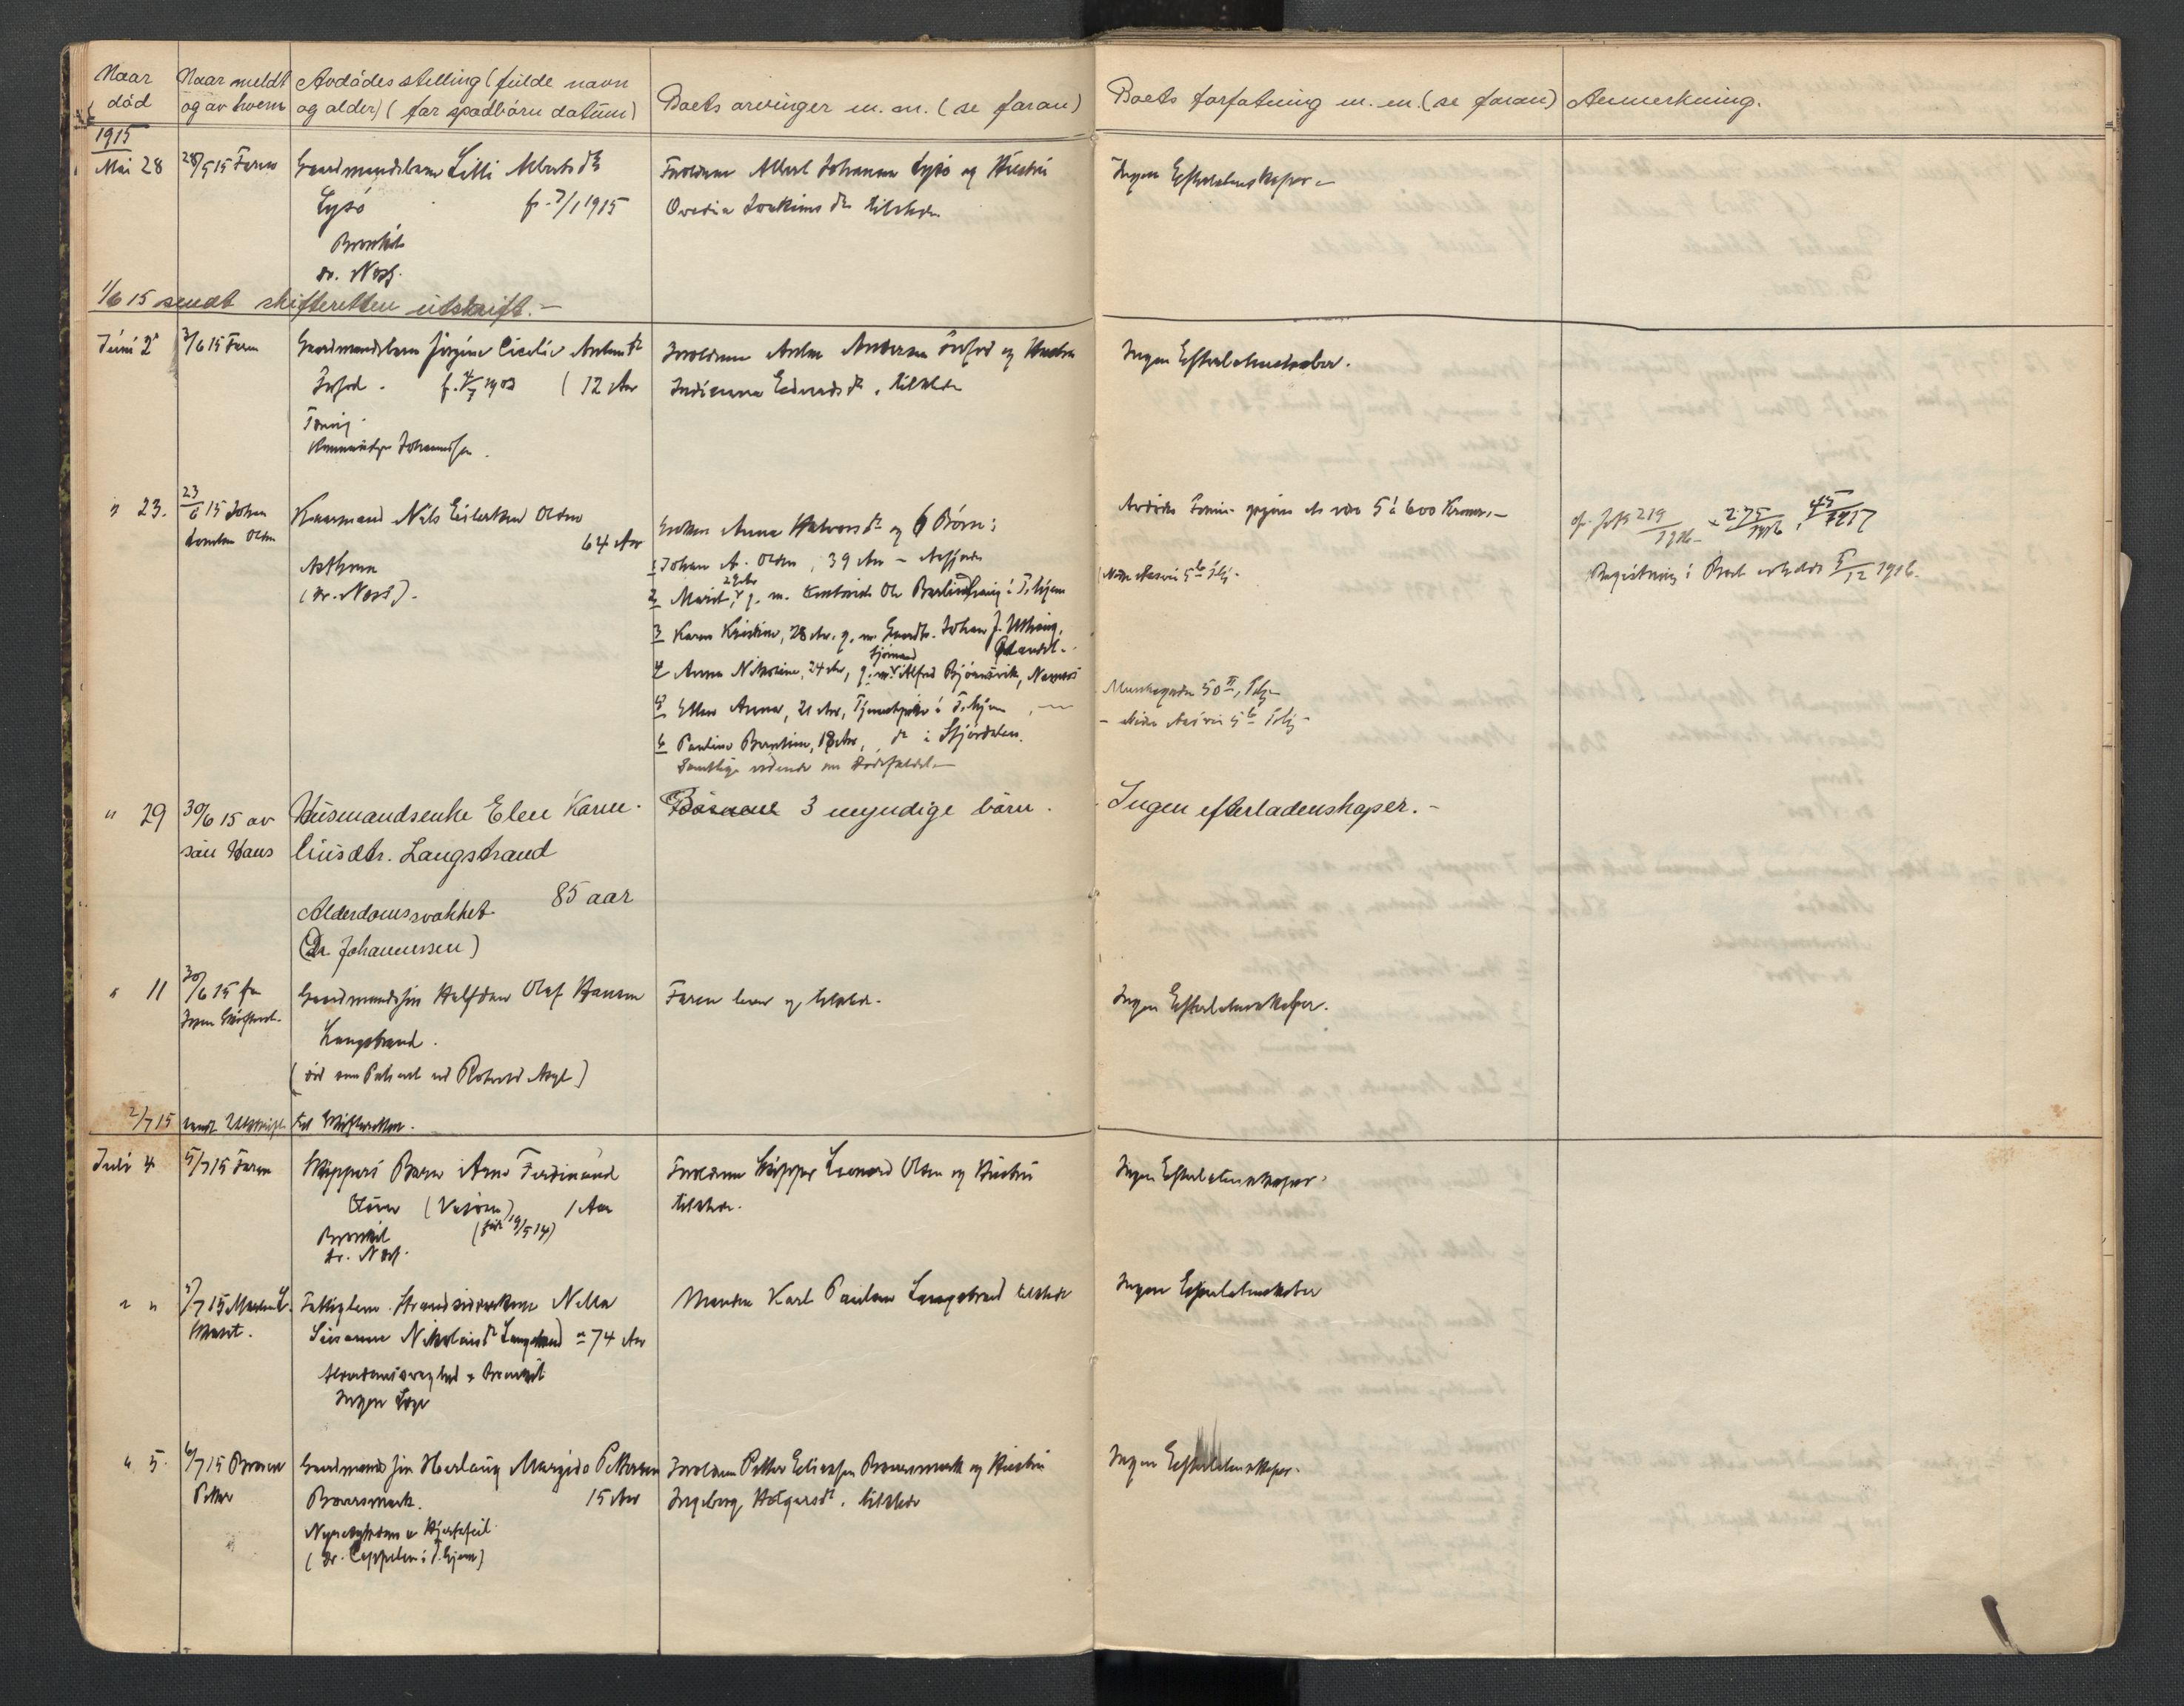 Naar død
Naar meldt og av hvem
Avdödes stilling (fulde navn og alder) (for spædbörn datum)
Boets arvinger m. m. (se foran)
Boets forfatning m. m. (se foran)
Anmerkning.
1915
Mai 28
28/5 15 Faren
Gaardmandsbarn Lilli Alberts dtr
Lysö f. 7/1 1915
Bronkit
dr. Næss.
Forældrene Albert Johansen Lysö og Hustru
Ovedia Joakims dtr tilstede
Ingen Efterladenskaper -
1/6 15 sendt skifteretten utskrift. -
Juni 2
3/6 15 Faren
Gaardmandsbarn Jörgine Cicelie Antons dtr
f. 1903 (12 Aar
Tæring
Johannessen.
Forældrene Anton Andersen og Hustru
Indianna Edvards dr. tilstede
Ingen Efterladenskaber.
" 23.
23/6 15 Johan
Olden
Kaarmand Nils Eilertsen Olden
64 Aar
Asthma
(dr. Næss).
Enken Anna Halvors dr og 6 Börn:
1 Johan A. Olden, 39 Aar - Aafjorden
2 Marit, 29 Aar g. m. Ole i T.hjem
3 Karen Kristine, 28 Aar. g. m. Gaardbr. Johan J.
Ørlandet.
4 Anna Nikoline, 24 Aar, g. m. sjömand Alfred Björnsvik,
5 Ellen Anna, 21 Aar, Tjenestepike i T.hjem
6 Pauline Berntine, 18 Aar, do i Stjördalen.
Samtlige vidende om Dödsfaldet.
5 à 600 Kroner. -
5 b T.hj.
Munkegaden 50 II, T.hj.
5 b T.hj.
219/1916 275/1916, 45/1917
Registrering i Boet 5/12 1916.
" 29
30/6 15 av
sön Hans
Husmandsenke Elen Karne-
liusdtr. Langstrand
85 aar
Alderdomssvakhet
(Dr. Johannessen)
3 myndige börn.
Ingen efterladenskaper. -
" 11
30/6 15 fra
Gaardmandssön Halfdan Olaf Hansen
Langstrand.
(död som Patient ved Rotvold Asyl)
Faren lever og tilstede.
Ingen Efterladenskaper.
2/7 15 sendt Utskrift til Skifteretten.
Juli 4
5/7 15 Faren
Skippers Barn Arne Ferdinand
Olsen 1 Aar
(född 19/5 14)
Bronkit
dr. Næss.
Forældrene Skipper Leonard Olsen og Hustru
tilstede.
Ingen Efterladenskaper.
" "
5/7 15
Fattiglem Nella
Susanne Nikolais dr Langstrand - 74 Aar
Alderdomssvaghed & Bronkit
Ingen Læge
Manden Karl Paulsen Langstrand tilstede
Ingen Efterladenskaber
" 5.
6/7 15 Broren
Petter
Gaardmands sön Herlaug Margido Pettersen
15 Aar
Nyresygdom & Hjertefeil
(dr. Cappelen i T.hjem)
Forældrene Petter Eliassen og Hustru
Ingeborg Holgers dr. tilstede
Ingen Efterladenskaper.